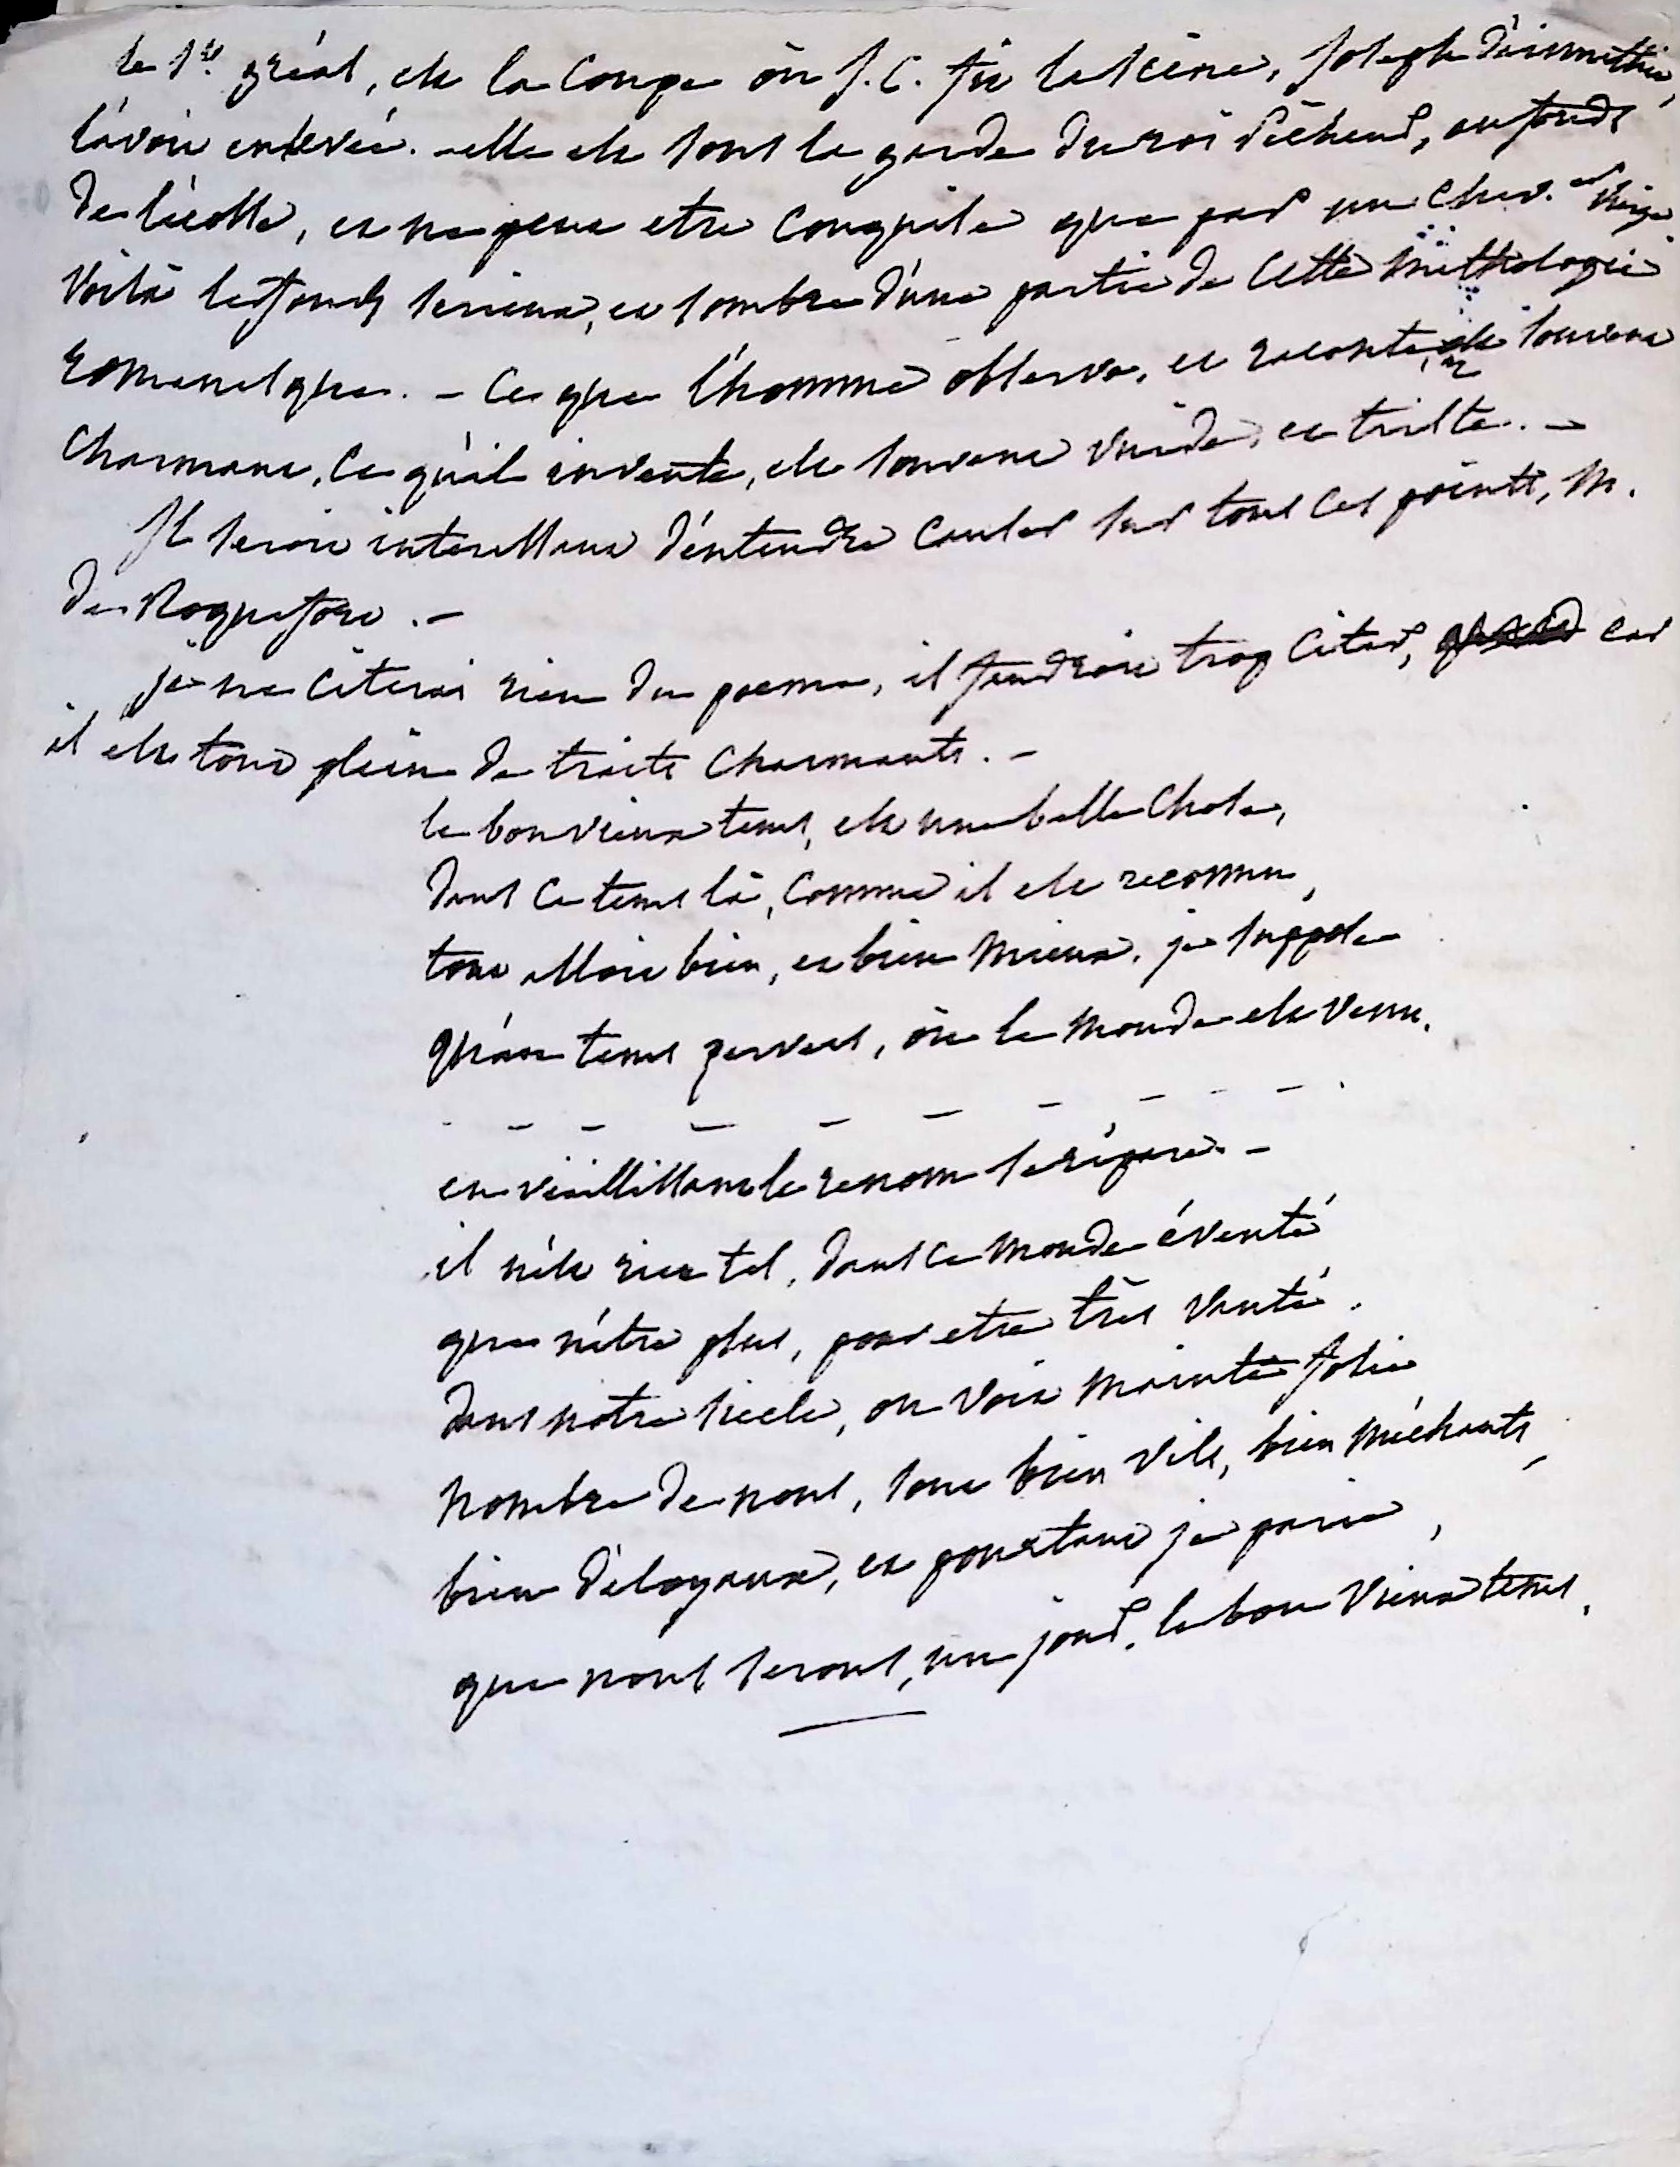 le S.t gréal, est la coupe où J. C. fit la scène, Joseph d'arimathie,
l'avoit enlevée. - elle est sous la garde du roi Pêcheur, au fonds
de l'écosse, et ne peut etre conquise que par un chev.er vierge
voilà le fonds serieux, et sombre d'une partie de cette mithologie
romanesque. - ce que l'homme observe, et raconte, est souvent
charmant, ce qu'il invente, est souvent vuide, et triste. -
Il seroit interessant d'entendre causer sur tous ces points, M.
de Roquefort. -
je ne citerai rien du poeme, il faudroit trop citer, car
il est tout plein de traits charmants. -
le bon vieux tems, est une belle chose,
dans ce tems là, comme il est reconnu,
tout alloit bien, et bien mieux, je suppose
qu'au tems pervers, où le monde est venu.
en vieillissant le renom se répare. -
il n'est rien tel, dans ce monde éventé
que n'être plus, pour etre très vanté.
dans notre siecle, on voit mainte folie
nombre de nous, sont bien vils, bien méchants,
bien déloyaux, et pourtant je parie,
que nous serons, un jour, le bon vieux tems.